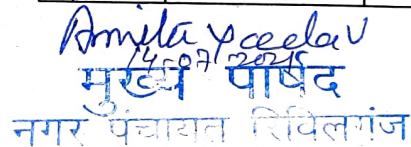 Amita Yadav
14-07-2025
मुख्य पार्षद
नगर पंचायत रिविलगंज